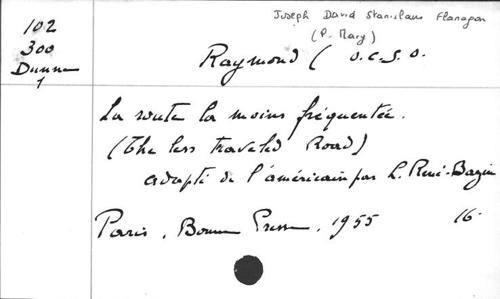 102
300
Dunne
1
Joseph David Stanislaus Flanagan
(P. Mary)
Raymond ( O.C.S.O.
La route la moins fréquentée.
(The less traveled Road)
adapté de l'américain par L. René-Bazin
Paris, Bonne Presse, 1955 16.